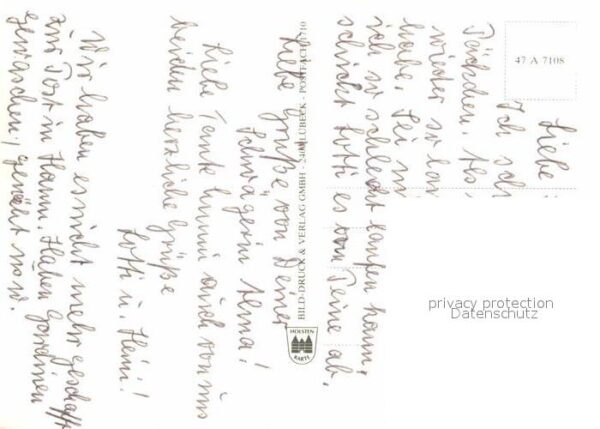 Liebe
Ich sch
Päckchen. Als
wieder so lan
habe. Sei m
ich so schlecht laufen kann,
schickt Lotti es von Peine ab.
Liebe Grüße von Deiner
Schwägerin Alma!
Liebe Tante Mimi auch von uns
beiden herzliche Grüße
Lotti u. Heini!
Wir haben es nicht mehr geschafft
zur Post in Hamm. Haben Gardinen
gewaschen, genäht usw.
47 A 7108
BILD-DRUCK & VERLAG GMBH - 2400 LÜBECK - POSTFACH 1710
HOLSTEN
KARTE
privacy protection
Datenschutz